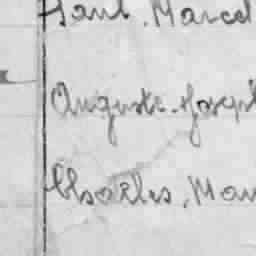 Paul. Marcel
Auguste. Joseph
Charles, Mau